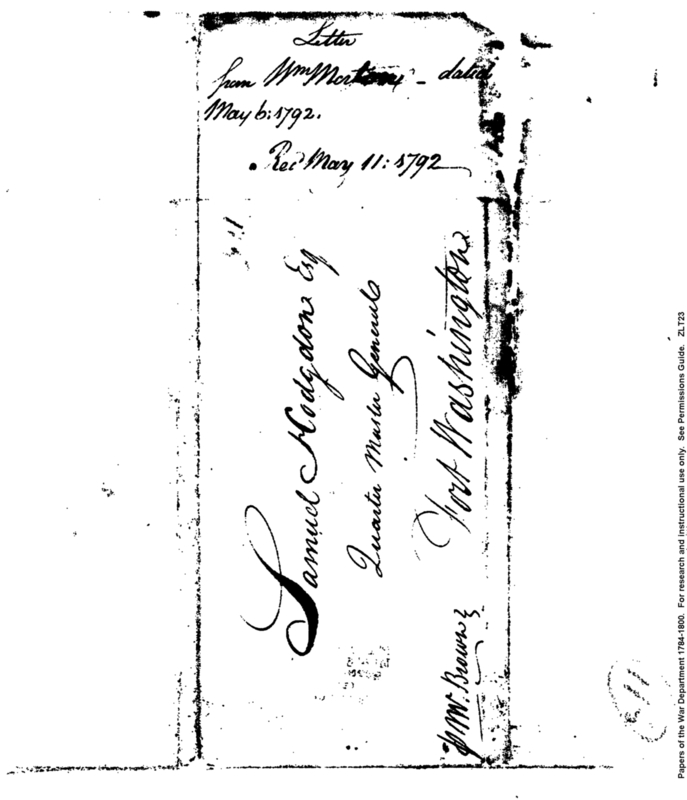 Letter
from Wm Morton - dated
May 6: 1792.
Recd May 11: 1792
Samuel Hodgdon Esq
Quarter Master General
Fort Washington
Mr. Brown
Papers of the War Department 1784-1800. For research and instructional use only. See Permissions Guide. ZLT23